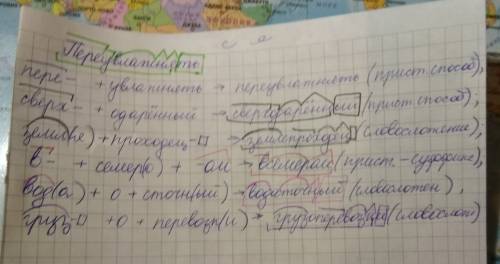 Переувлажнять
пере- + увлажнять → переувлажнять (прист. способ),
сверх- + одарённый → сверходарённый (прист. способ),
земл(я) + проходец → землепроходец (словосложение),
в- + семер(о) + -ом → всемером (прист.-суффикс),
вод(а) + о + сточн(ый) → водосточный (словослотен),
груз + о + перевозк(и) → грузоперевозки (словослотн)